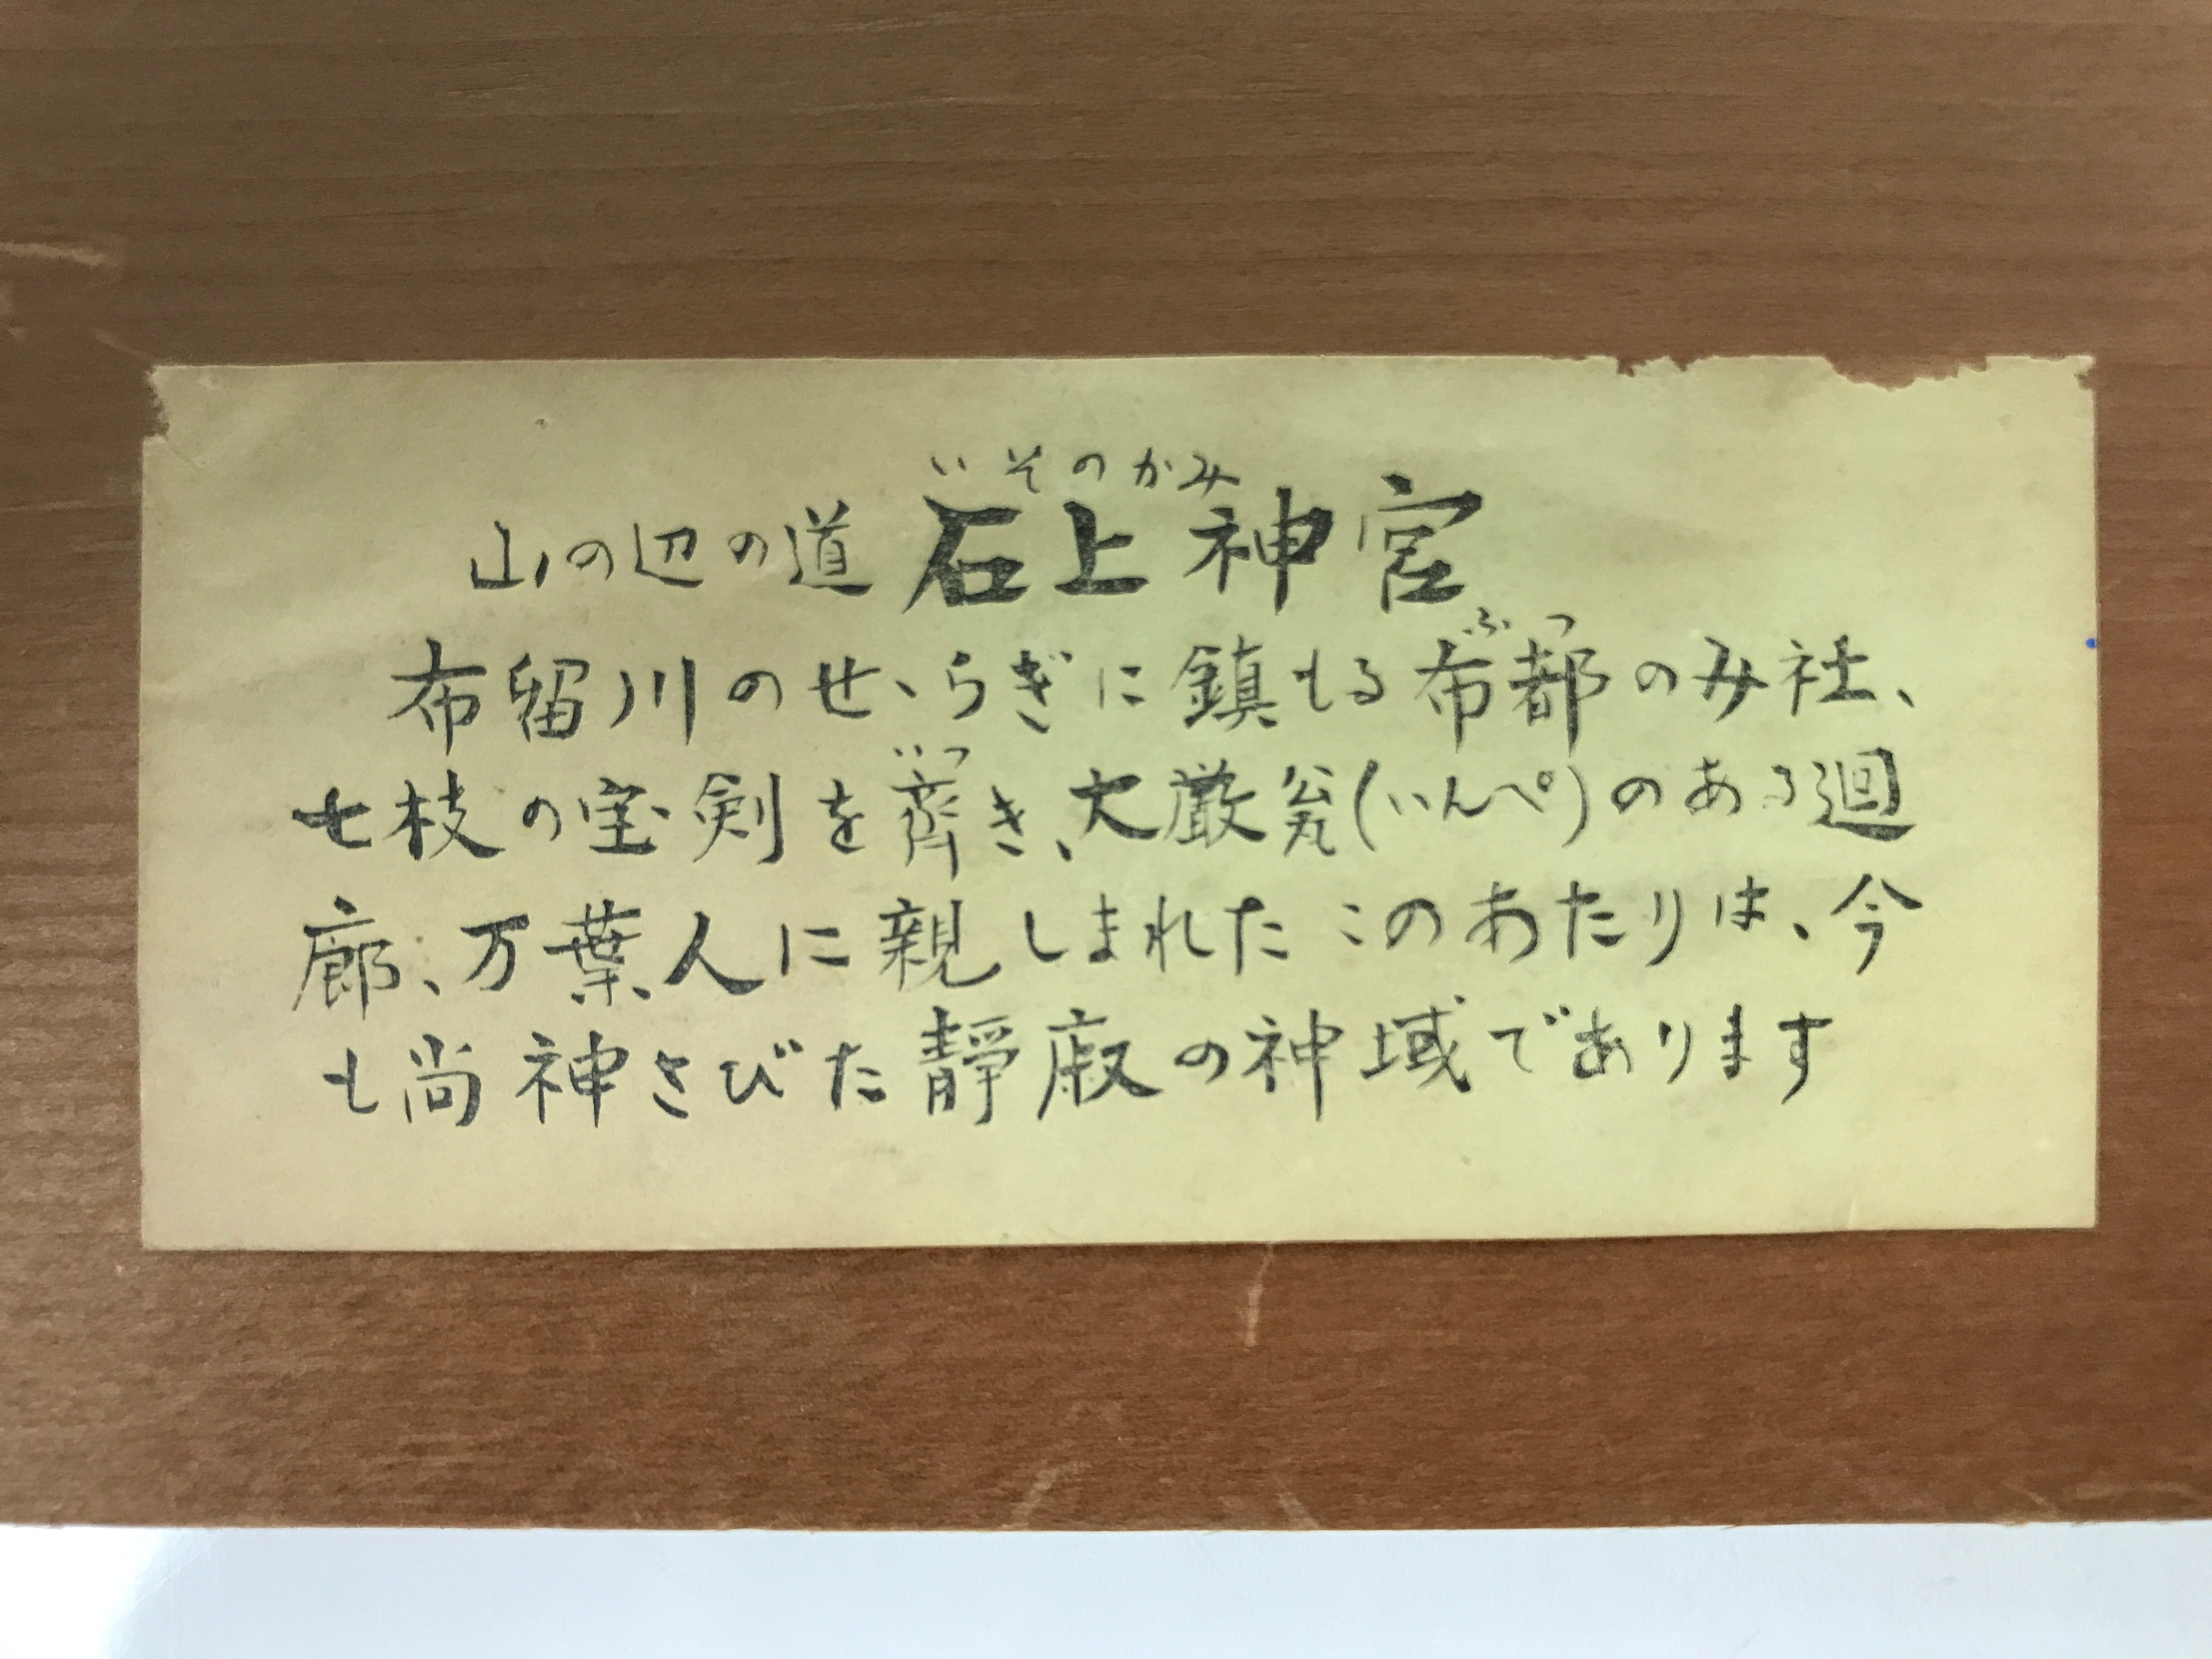 いそのかみ
山の辺の道 石上神宮
ふつ
布留川のせゝらぎに鎮もる布都のみ社、
いつ
七枝の宝剣を齊き、大厳瓮(いんぺ)のある廻
廊、万葉人に親しまれたこのあたりは、今
も尚神さびた靜寂の神域であります